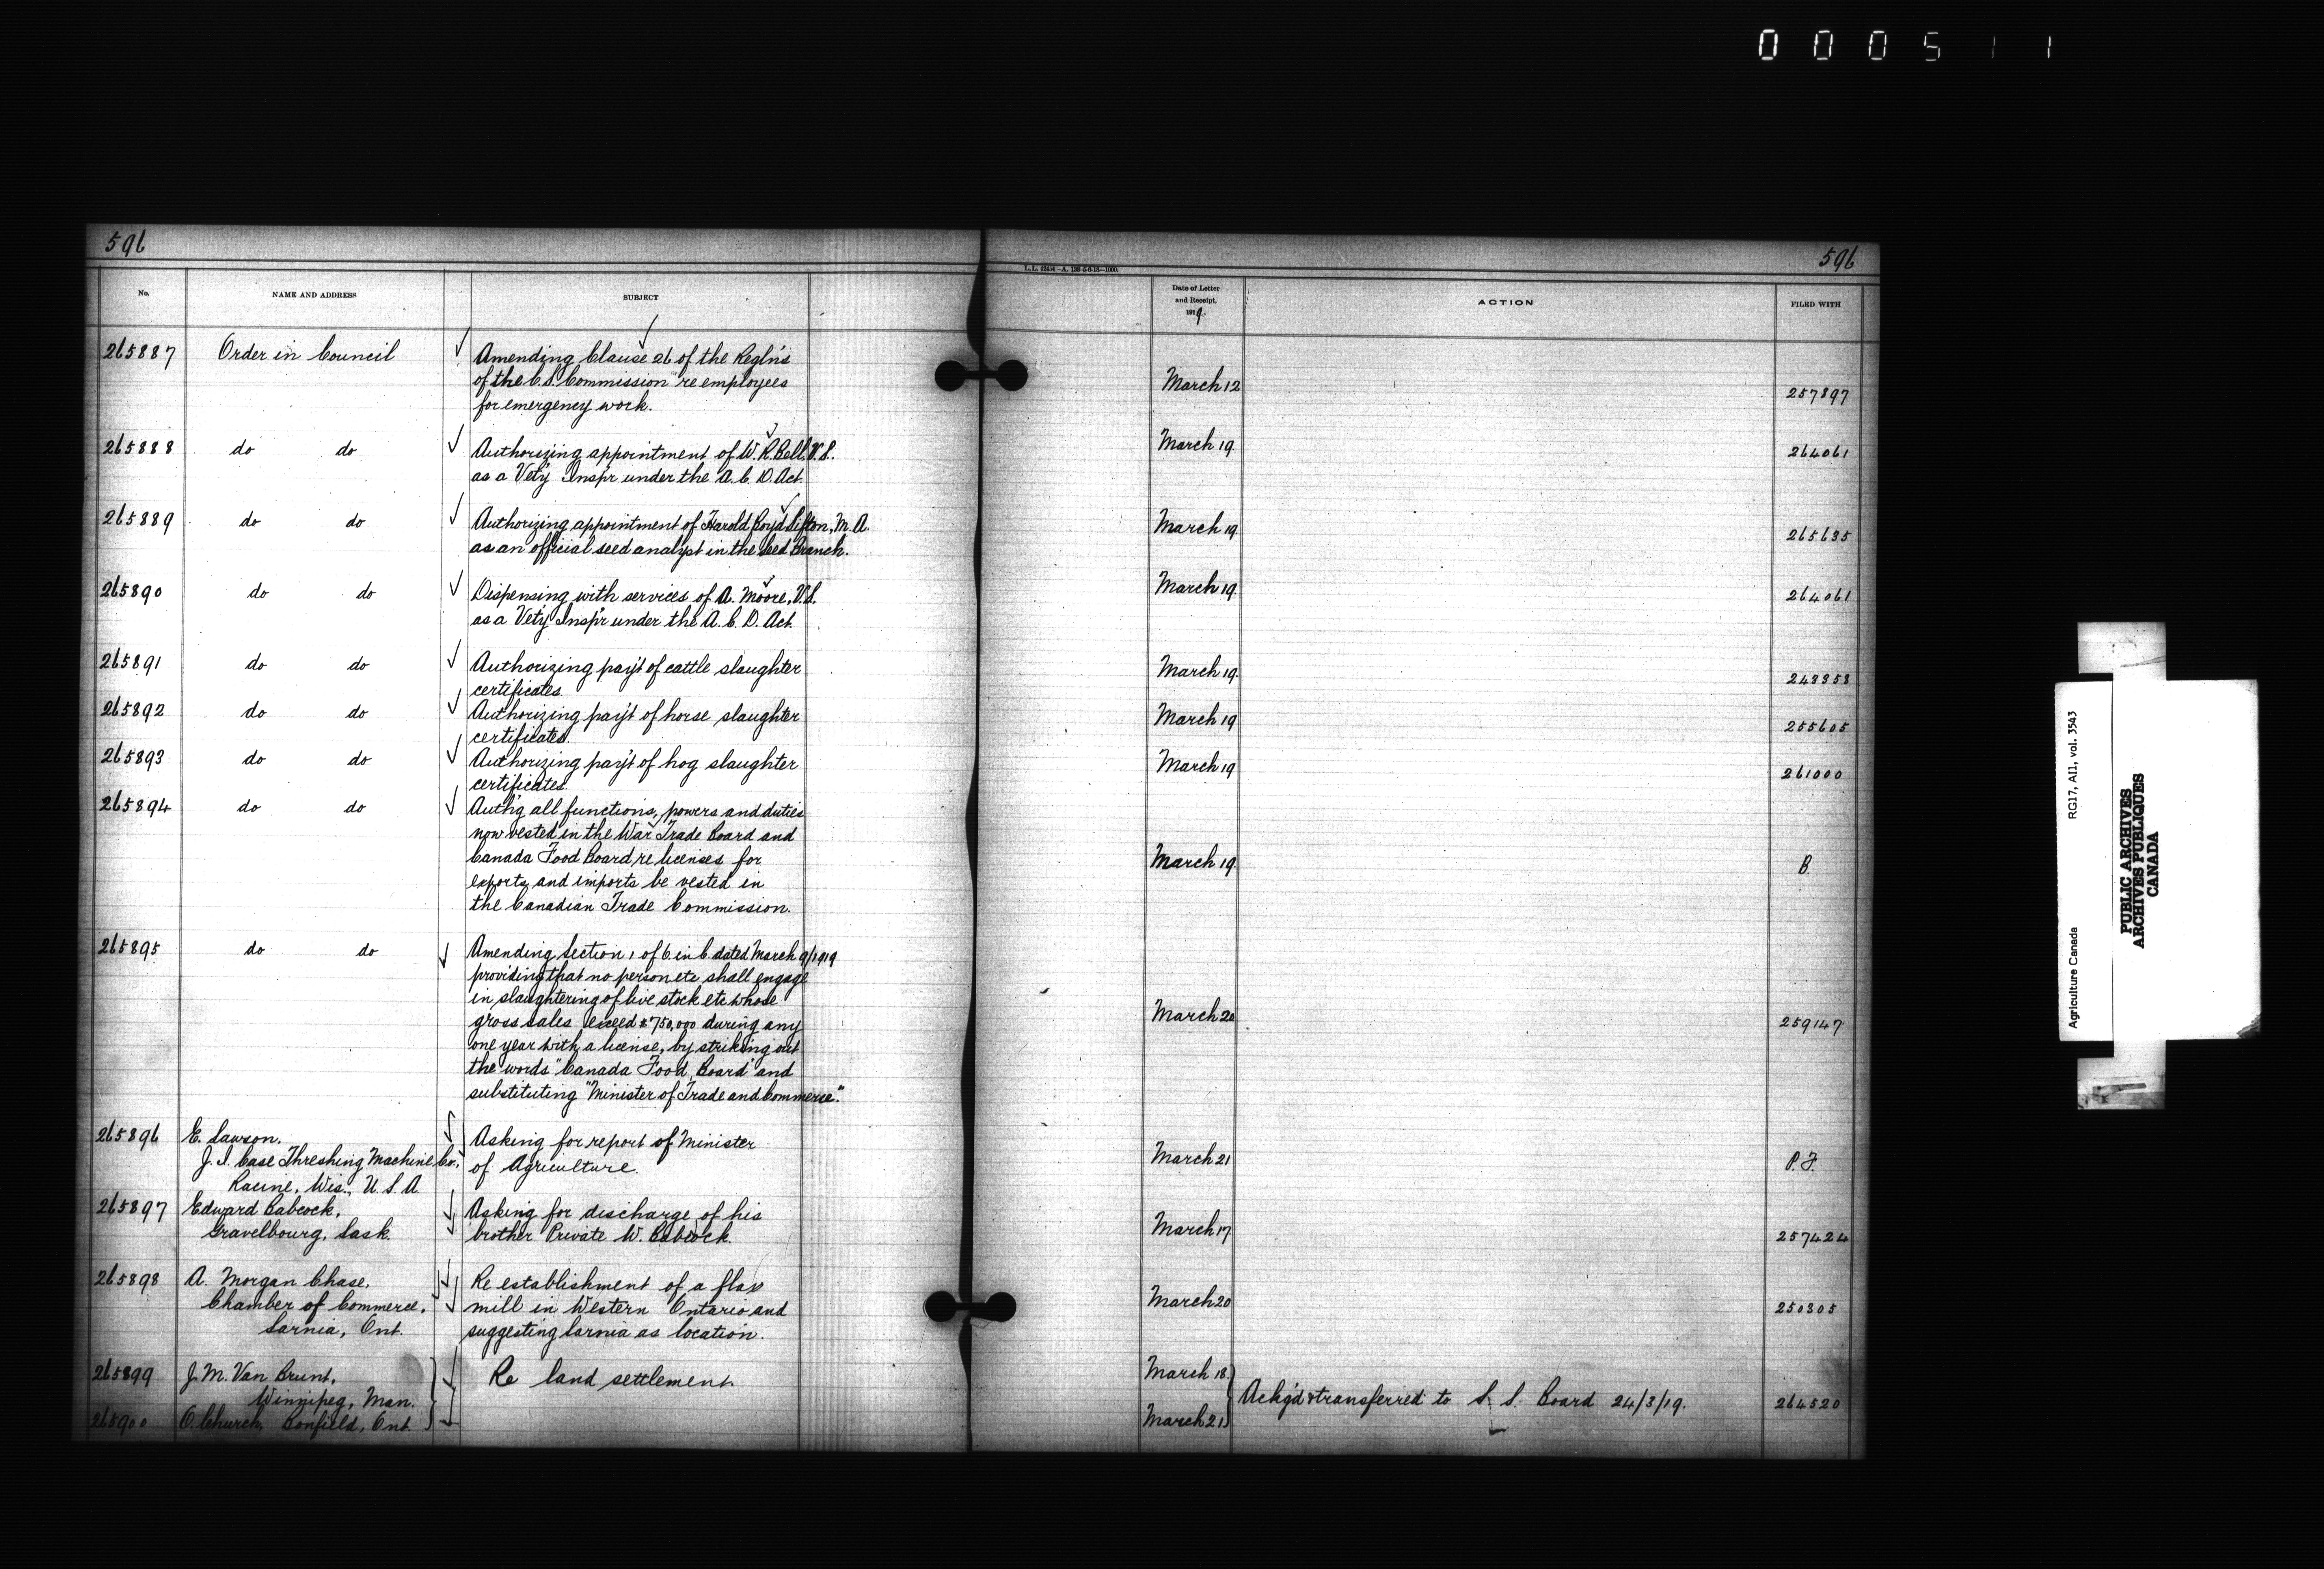 000511
596
596
L.L. 62454—A. 138-5-6-18—1000.
No.
NAME AND ADDRESS
SUBJECT
Date of Letter
and Receipt,
1919.
ACTION
FILED WITH
265887 Order in Council Amending Clause 26 of the Regln's
of the C.S. Commission re employees March 12 257897
for emergency work.
265888 do do Authorizing appointment of W. R. Bell, V.S. March 19. 264061
as a Vet'y Insp'r under the A. C. D. Act.
265889 do do Authorizing appointment of Harold Boyd Sifton, M.A. March 19. 265635
as an official seed analyst in the Seed Branch.
265890 do do Dispensing with services of A. Moore, V.S. March 19. 264061
as a Vet'y Insp'r under the A. C. D. Act.
265891 do do Authorizing pay't of cattle slaughter March 19. 248358
certificates.
265892 do do Authorizing pay't of horse slaughter March 19 255605
certificates.
265893 do do Authorizing pay't of hog slaughter March 19 261000
certificates.
265894 do do Auth'g all functions, powers and duties
now vested in the War Trade Board and
Canada Food Board re licenses for March 19. B.
exports and imports be vested in
the Canadian Trade Commission.
265895 do do Amending Section 1 of O. in C. dated March 9/1919
providing that no person etc shall engage
in slaughtering of live stock etc whose
gross sales exceed $750,000 during any March 20 259147
one year with a license, by striking out
the words "Canada Food Board" and
substituting "Minister of Trade and Commerce."
265896 E. Lawson, Asking for report of Minister
J. I. Case Threshing Machine Co., of Agriculture. March 21 P.F.
Racine, Wis., U.S.A.
265897 Edward Babcock, Asking for discharge of his
Gravelbourg, Sask. brother Private W. Babcock. March 17 257424
265898 A. Morgan Chase, Re establishment of a flax
Chamber of Commerce, mill in Western Ontario and March 20 250305
Sarnia, Ont. suggesting Sarnia as location.
265899 J. M. Van Brunt, Re land settlement. March 18.
Winnipeg, Man. Ack'g'd & transferred to S. S. Board 24/3/19. 264520
265900 C. Church, Bonfield, Ont. March 21
Agriculture Canada RG17, A11, vol. 3543
PUBLIC ARCHIVES
ARCHIVES PUBLIQUES
CANADA